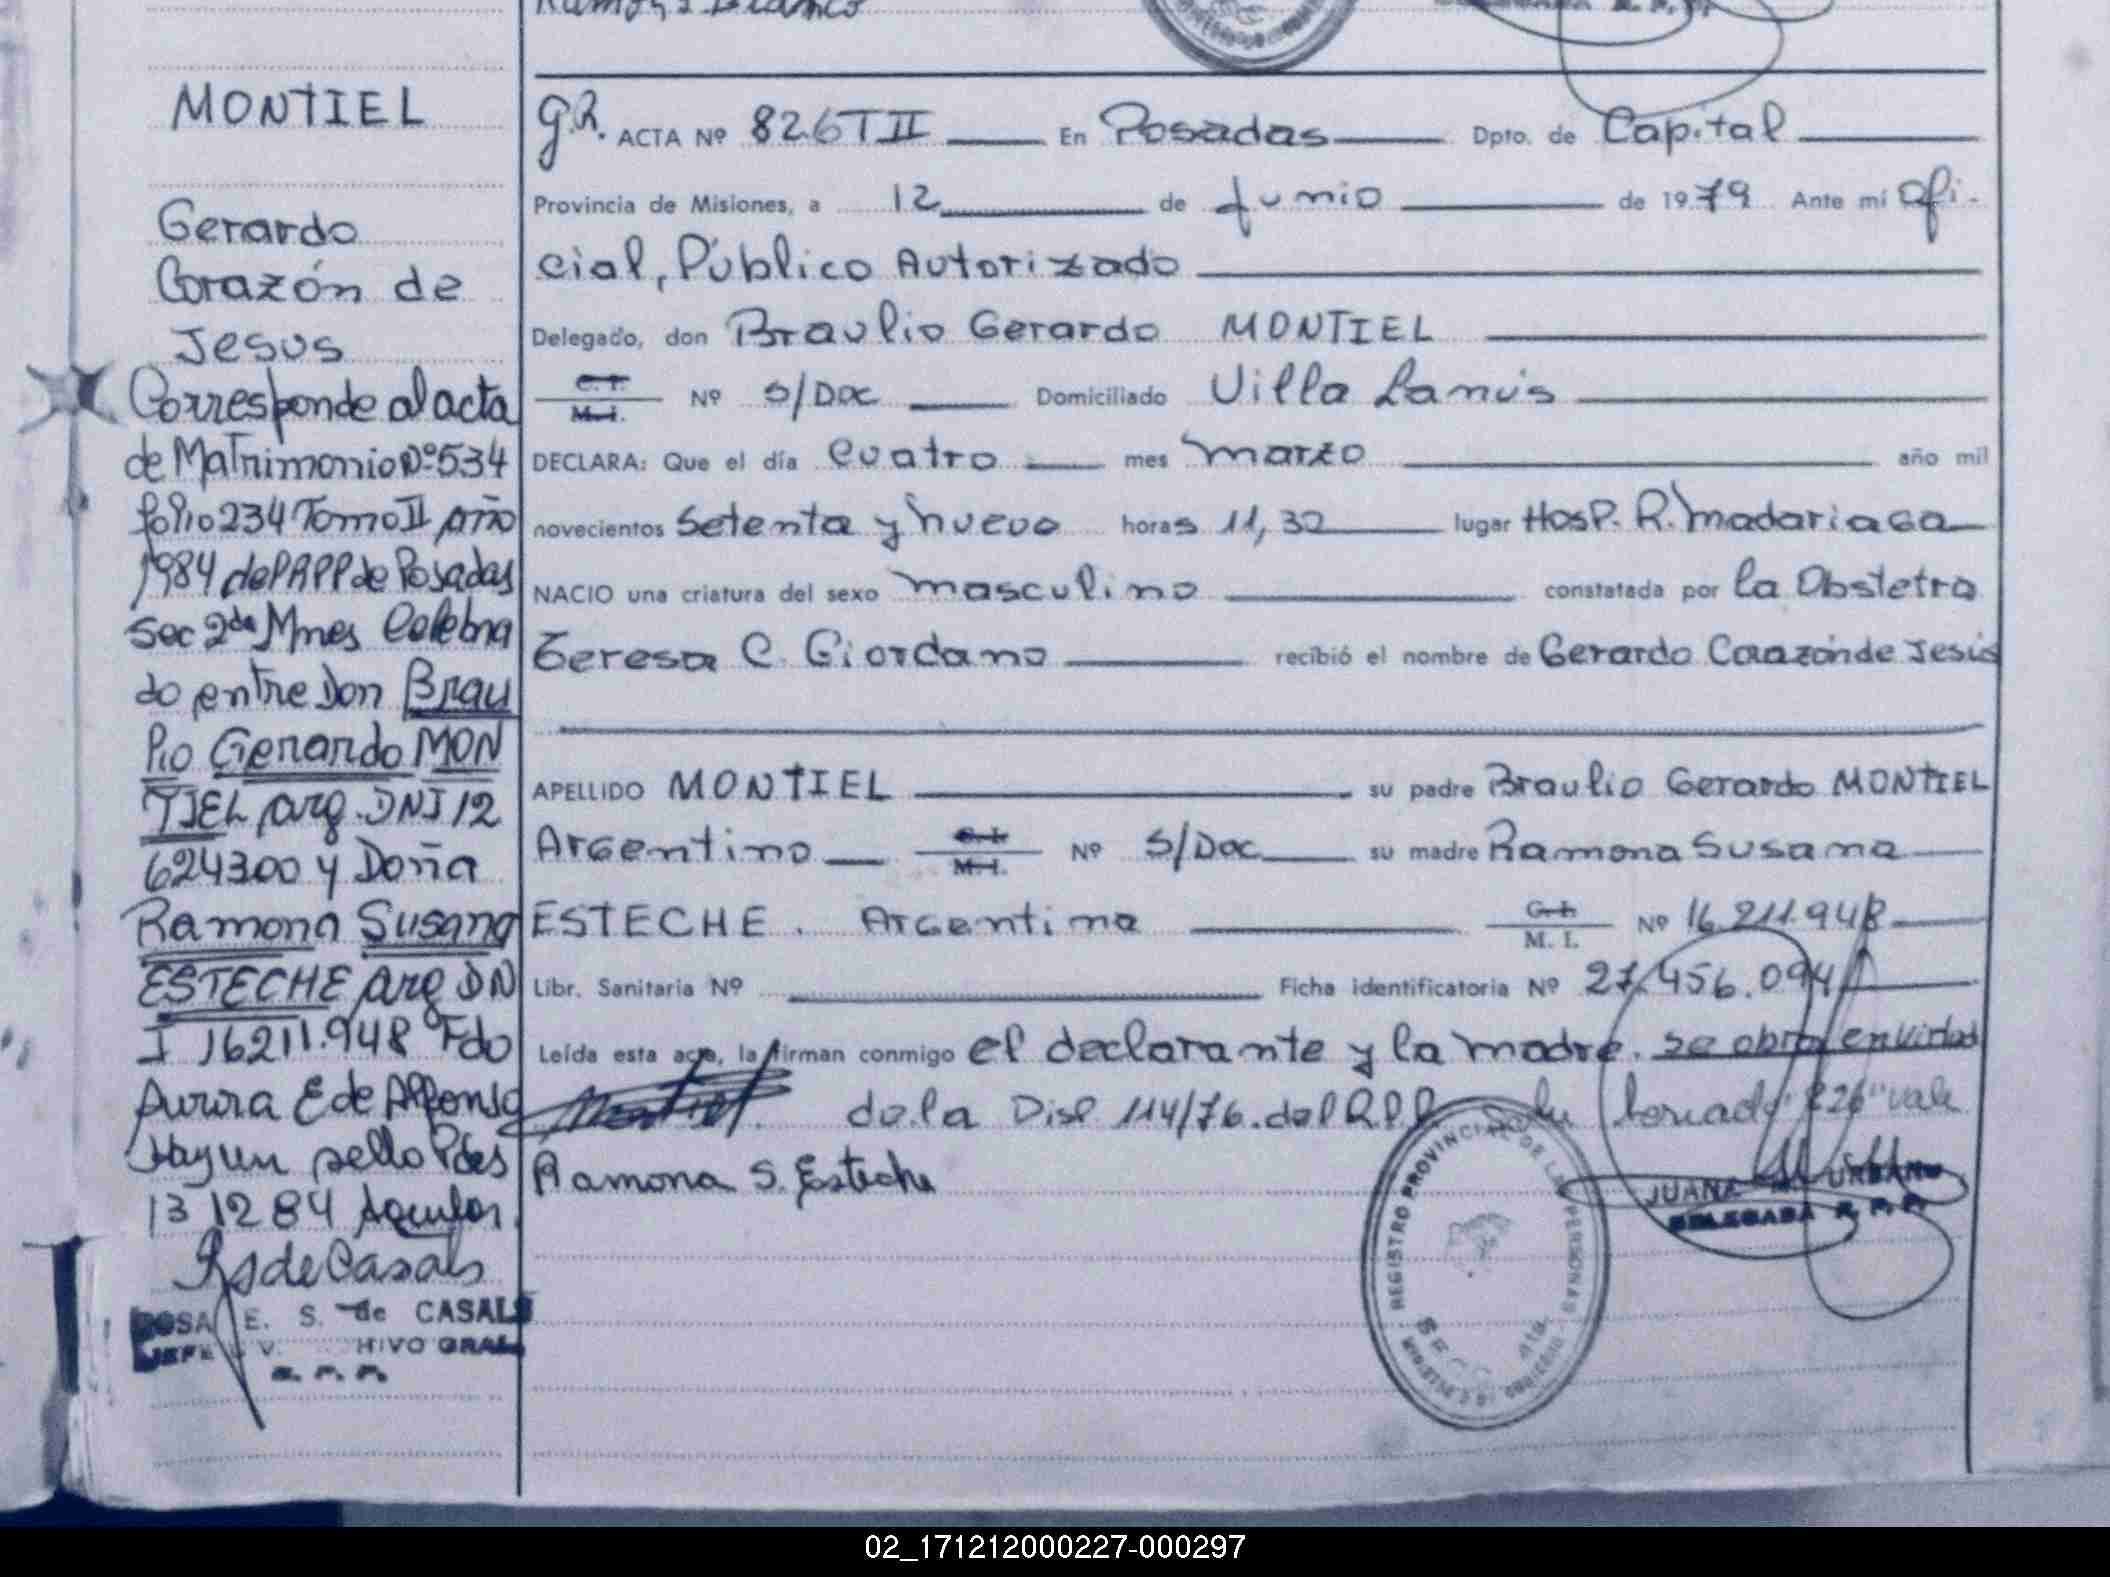 Ramon
MONTIEL
Gerardo
Corazón de
Jesus
Corresponde al acta
de Matrimonio Nº 534
folio 234 Tomo II año
1984 del RPP de Posadas
Sec 2da Mnes Celebra
do entre Don Brau
lio Gerardo MON
TIEL arg. DNI 12
624300 y Doña
Ramona Susana
ESTECHE arg DN
I 16211.948 Fdo
Aurora E de Alfonso
Hay un sello Pdas
13 12 84 Aguilar
RSdeCasals
ROSA E. S. de CASALS
JEFE HIVO GRAL
R. P. P.
G.R. ACTA Nº 826 T II En Posadas Dpto. de Capital
Provincia de Misiones, a 12 de Junio de 1979 Ante mí Ofi-
cial, Público Autorizado
Delegado, don Braulio Gerardo MONTIEL
C. I. M. I. Nº S/Doc Domiciliado Villa Lanús
DECLARA: Que el día cuatro mes marzo año mil
novecientos setenta y nueve horas 11,30 lugar Hosp. R. Madariaga
NACIO una criatura del sexo masculino constatada por la Obstetra
Teresa C. Giordano recibió el nombre de Gerardo Corazón de Jesús
APELLIDO MONTIEL su padre Braulio Gerardo MONTIEL
Argentino C. I. M. I. Nº S/Doc su madre Ramona Susana
ESTECHE. Argentina C. I. M. I. Nº 16.211.948
Libr. Sanitaria Nº Ficha identificatoria Nº 27.456.094
Leída esta acta, la firman conmigo el declarante y la madre. se obra en virtud
Montiel. de la Disp. 114/76. del R.P.P. "826" vale
Ramona S. Esteche
REGISTRO PROVINCIAL DE LAS PERSONAS
JUANA URBANO
DELEGADA R. P. P.
02_171212000227-000297